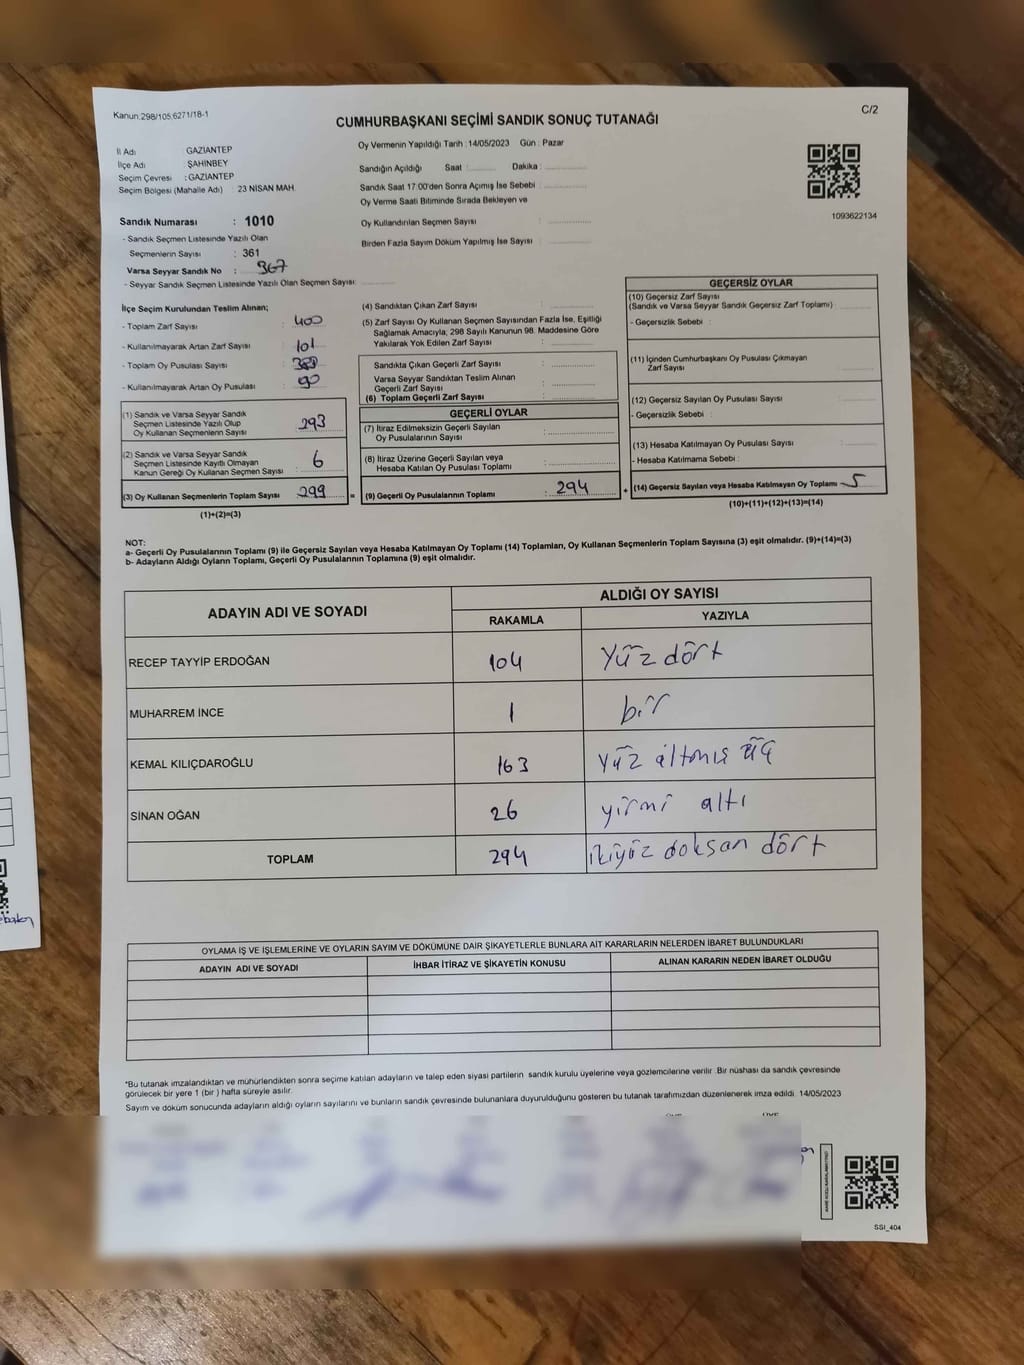 Kanun:298/105,6271/18-1
C/2
CUMHURBAŞKANI SEÇİMİ SANDIK SONUÇ TUTANAĞI
İl Adı GAZIANTEP
İlçe Adı ŞAHİNBEY
Seçim Çevresi : GAZIANTEP
Seçim Bölgesi (Mahalle Adı) : 23 NİSAN MAH.
Sandık Numarası : 1010
- Sandık Seçmen Listesinde Yazılı Olan
Seçmenlerin Sayısı : 361
Varsa Seyyar Sandık No : 367
- Seyyar Sandık Seçmen Listesinde Yazılı Olan Seçmen Sayısı:
Oy Vermenin Yapıldığı Tarih : 14/05/2023 Gün : Pazar
Sandığın Açıldığı Saat : Dakika :
Sandık Saat 17:00'den Sonra Açımış İse Sebebi :
Oy Verme Saati Bitiminde Sırada Bekleyen ve
Oy Kullandırılan Seçmen Sayısı :
Birden Fazla Sayım Döküm Yapılmış İse Sayısı :
1093622134
İlçe Seçim Kurulundan Teslim Alınan;
- Toplam Zarf Sayısı : 400
- Kullanılmayarak Artan Zarf Sayısı : 101
- Toplam Oy Pusulası Sayısı :
- Kullanılmayarak Artan Oy Pusulası : 90
(1) Sandık ve Varsa Seyyar Sandık
Seçmen Listesinde Yazılı Olup
Oy Kullanan Seçmenlerin Sayısı : 293
(2) Sandık ve Varsa Seyyar Sandık
Seçmen Listesinde Kayıtlı Olmayan
Kanun Gereği Oy Kullanan Seçmen Sayısı : 6
(3) Oy Kullanan Seçmenlerin Toplam Sayısı : 299 =
(1)+(2)=(3)
(4) Sandıktan Çıkan Zarf Sayısı :
(5) Zarf Sayısı Oy Kullanan Seçmen Sayısından Fazla İse, Eşitliği
Sağlamak Amacıyla, 298 Sayılı Kanunun 98. Maddesine Göre
Yakılarak Yok Edilen Zarf Sayısı :
Sandıkta Çıkan Geçerli Zarf Sayısı :
Varsa Seyyar Sandıktan Teslim Alınan
Geçerli Zarf Sayısı :
(6) Toplam Geçerli Zarf Sayısı :
GEÇERLİ OYLAR
(7) İtiraz Edilmeksizin Geçerli Sayılan
Oy Pusulalarının Sayısı :
(8) İtiraz Üzerine Geçerli Sayılan veya
Hesaba Katılan Oy Pusulası Toplamı :
(9) Geçerli Oy Pusulalarının Toplamı : 294 +
GEÇERSİZ OYLAR
(10) Geçersiz Zarf Sayısı
(Sandık ve Varsa Seyyar Sandık Geçersiz Zarf Toplamı) :
- Geçersizlik Sebebi :
(11) İçinden Cumhurbaşkanı Oy Pusulası Çıkmayan
Zarf Sayısı :
(12) Geçersiz Sayılan Oy Pusulası Sayısı :
- Geçersizlik Sebebi :
(13) Hesaba Katılmayan Oy Pusulası Sayısı :
- Hesaba Katılmama Sebebi :
(14) Geçersiz Sayılan veya Hesaba Katılmayan Oy Toplamı : 5
(10)+(11)+(12)+(13)=(14)
NOT:
a- Geçerli Oy Pusulalarının Toplamı (9) ile Geçersiz Sayılan veya Hesaba Katılmayan Oy Toplamı (14) Toplamları, Oy Kullanan Seçmenlerin Toplam Sayısına (3) eşit olmalıdır. (9)+(14)=(3)
b- Adayların Aldığı Oyların Toplamı, Geçerli Oy Pusulalarının Toplamına (9) eşit olmalıdır.
ADAYIN ADI VE SOYADI ALDIĞI OY SAYISI
RAKAMLA YAZIYLA
RECEP TAYYİP ERDOĞAN 104 yüz dört
MUHARREM İNCE 1 bir
KEMAL KILIÇDAROĞLU 163 yüz altmış üç
SİNAN OĞAN 26 yirmi altı
TOPLAM 294 ikiyüz doksan dört
OYLAMA İŞ VE İŞLEMLERİNE VE OYLARIN SAYIM VE DÖKÜMÜNE DAİR ŞİKAYETLERLE BUNLARA AİT KARARLARIN NELERDEN İBARET BULUNDUKLARI
ADAYIN ADI VE SOYADI İHBAR İTİRAZ VE ŞİKAYETİN KONUSU ALINAN KARARIN NEDEN İBARET OLDUĞU
*Bu tutanak imzalandıktan ve mühürlendikten sonra seçime katılan adayların ve talep eden siyasi partilerin sandık kurulu üyelerine veya gözlemcilerine verilir. Bir nüshası da sandık çevresinde
görülecek bir yere 1 (bir) hafta süreyle asılır.
Sayım ve döküm sonucunda adayların aldığı oyların sayılarını ve bunların sandık çevresinde bulunanlara duyurulduğunu gösteren bu tutanak tarafımızdan düzenlenerek imza edildi. 14/05/2023
SSI_404